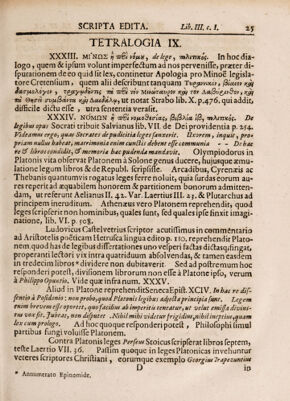 SCRIPTA EDITA. Lib. III. c. I. 25
TETRALOGIA IX.
XXXIII. ΜΙΝΩΣ ἢ περὶ νόμου, de lege, πολιτικός. In hoc dia-
logo, quem & ipsum volunt imperfectum ad nos pervenisse, præter di-
sputationem de eo quid sit lex, continetur Apologia pro Minoë legisla-
tore Cretensium, quem alii describebant tanquam
, ut notat Strabo lib. X. p. 476. qui addit,
difficile dictu esse, utra sententia verasit.
XXXIV. ΝΟΜΩΝ ἢ περὶ νομοθεσίας, βιβλία ιβ, πολιτικός. De
legibus opus Socrati tribuit Salvianus lib. VII. de Dei providentia p. 254.
Videamus ergo, quæ Socrates de pudicitia leges sanxerit. Uxorem, inquit, pro-
priam nullus habeat, matrimonia enim cunctis debent esse communia -- - De hac
re & libros condidit, & memoria hac pudenda mandavit. Olympiodorus in
Platonis vita observat Platonem à Solone genus ducere, hujusque æmu-
latione legum libros & de Republ. scripsisse. Arcadibus, Cyrenæis ac
Thebanis quantumvis rogatus leges ferre noluit, quia surdas eorum au-
res reperit ad æquabilem honorem & partitionem bonorum admitten-
dam, ut referunt Aelianus II. 42. Var. Laertius III. 23. & Plutarchus ad
principem ineruditum. Athenæus vero Platonem reprehendit, quod
leges scripserit non hominibus, quales sunt, sed quales ipse finxit imagi-
natione, lib. VI. p. 508.
Ludovicus Castelvetrius scriptor acutissimus in commentario
ad Aristotelis poëticam Hetrusca lingua edito p. 110. reprehendit Plato-
nem quod has de legibus dissertationes uno vesperi factas dictasq; fingat,
properanti lectori vix intra quatriduum absolvendas, & tamen easdem
in tredecim libros * dividere non dubitaverit. Sed ad postremum hoc
responderi potest, divisionem librorum non esse à Platone ipso, verum
à Philippo Opuntio. Vide quæ infra num. XXXV.
Aliud in Platone reprehendit Seneca Epist. XCIV. In hac re dis-
sentio à Posidonio: non probo, quod Platonis legibus adjecta principia sunt. Legem
enim brevem esse oportet, quo facilius ab imperitis teneatur, ut velut emissa divini-
tus vox sit. Jubeat, non disputet. Nihil mihi videtur frigidius, nihil ineptius, quam
lex cum prologo. Ad hoc quoque responderi potest, Philosophi simul
partibus fungi voluisse Platonem.
Contra Platonis leges Persæus Stoicus scripserat libros septem,
teste Laertio VII. 36. Passim quoque in leges Platonicas invehuntur
veteres scriptores Christiani, eorumque exemplo Georgius Trapezuntius
D in
* Annumerato Epinomide.